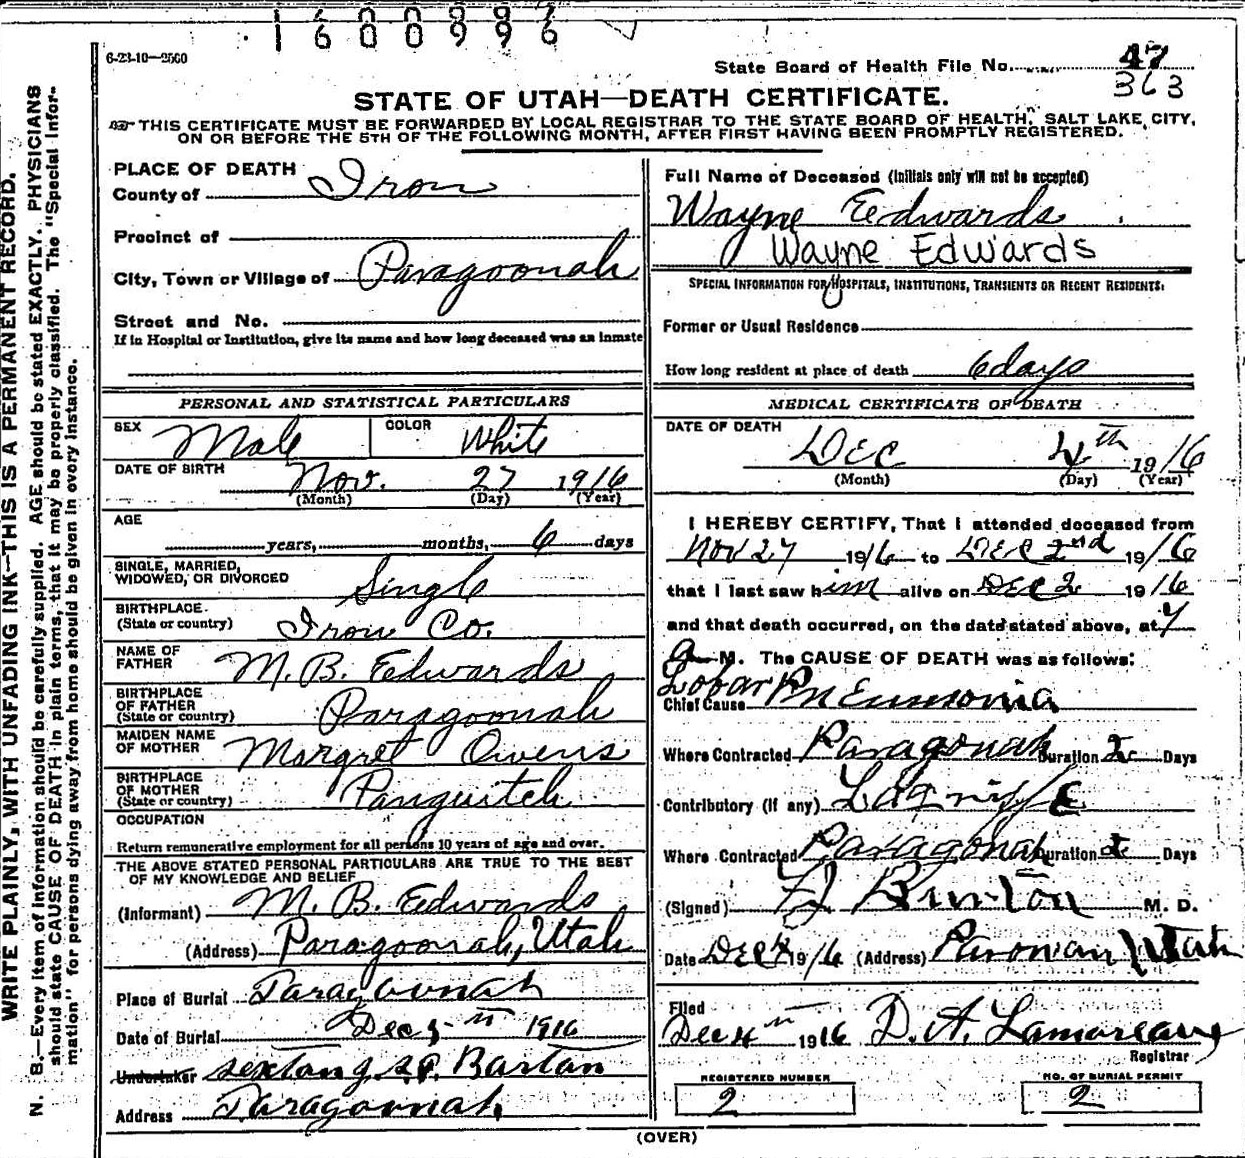 1600996
6-23-10—2500
State Board of Health File No. 47
363
STATE OF UTAH—DEATH CERTIFICATE.
THIS CERTIFICATE MUST BE FORWARDED BY LOCAL REGISTRAR TO THE STATE BOARD OF HEALTH, SALT LAKE CITY,
ON OR BEFORE THE 5TH OF THE FOLLOWING MONTH, AFTER FIRST HAVING BEEN PROMPTLY REGISTERED.
WRITE PLAINLY, WITH UNFADING INK—THIS IS A PERMANENT RECORD.
N. B.—Every item of information should be carefully supplied. AGE should be stated EXACTLY. PHYSICIANS
should state CAUSE OF DEATH in plain terms, that it may be properly classified. The "Special Infor-
mation" for persons dying away from home should be given in every instance.
PLACE OF DEATH
County of Iron
Precinct of
City, Town or Village of Paragoonah
Street and No.
If in Hospital or Institution, give its name and how long deceased was an inmate
PERSONAL AND STATISTICAL PARTICULARS
SEX Male COLOR White
DATE OF BIRTH Nov. 27 1916
(Month) (Day) (Year)
AGE
years, months, 6 days
SINGLE, MARRIED,
WIDOWED, OR DIVORCED Single
BIRTHPLACE
(State or country) Iron Co.
NAME OF
FATHER M. B. Edwards
BIRTHPLACE
OF FATHER
(State or country) Paragoonah
MAIDEN NAME
OF MOTHER Margret Owens
BIRTHPLACE
OF MOTHER
(State or country) Panguitch
OCCUPATION
Return remunerative employment for all persons 10 years of age and over.
THE ABOVE STATED PERSONAL PARTICULARS ARE TRUE TO THE BEST
OF MY KNOWLEDGE AND BELIEF
(Informant) M. B. Edwards
(Address) Paragoonah, Utah
Place of Burial Paragoonah
Date of Burial Dec 5th 1916
Undertaker sextang S.P. Bartan
Address Paragoonah
Full Name of Deceased (Initials only will not be accepted)
Wayne Eedwards
Wayne Edwards
SPECIAL INFORMATION FOR HOSPITALS, INSTITUTIONS, TRANSIENTS OR RECENT RESIDENTS:
Former or Usual Residence
How long resident at place of death 6 days
MEDICAL CERTIFICATE OF DEATH
DATE OF DEATH
Dec 4th 1916
(Month) (Day) (Year)
I HEREBY CERTIFY, That I attended deceased from
Nov 27 1916 to Dec 2nd 1916
that I last saw him alive on Dec 2 1916
and that death occurred, on the date stated above, at 7
a M. The CAUSE OF DEATH was as follows:
Lobar
Chief Cause Pneumonia
Where Contracted Paragonah Duration 2 Days
Contributory (If any) Lagrippe
Where Contracted Paragonah Duration 2 Days
(Signed) Burton M. D.
Date Dec 4 1916 (Address) Parowan Utah
Filed
Dec 4th 1916 D. A. Lamoreaux
Registrar
REGISTERED NUMBER
2
NO. OF BURIAL PERMIT
2
(OVER)